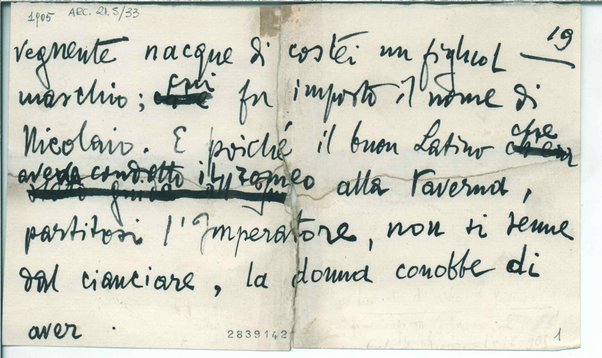 1905 ARC. 21.5/33
19
vegnente nacque di costei un figliuol
maschio; cui fu imposto il nome di
Nicolaio. E poiché il buon Latino che
aveva condotto il Tragueo alla taverna,
partitosi l'Imperatore, non si tenne
dal cianciare, la donna conobbe di
aver.
2839142
1